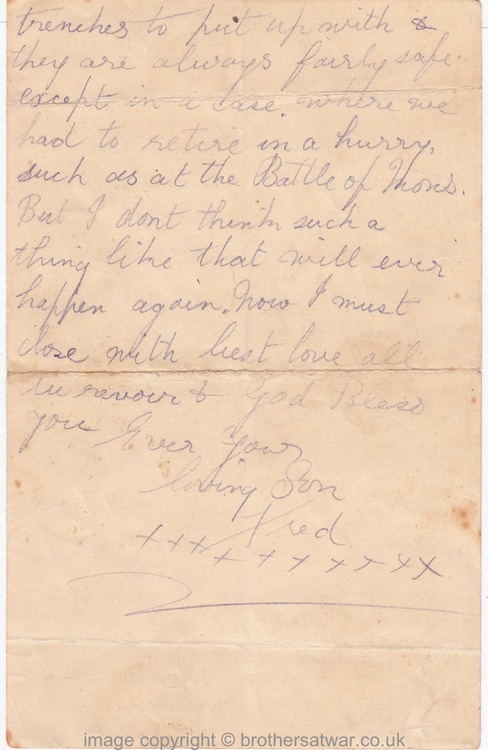 trenches to put up with &
they are always fairly safe
except in a case where we
had to retire in a hurry,
such as at the Battle of Mons.
But I dont think such a
thing like that will ever
happen again. Now I must
close with best love all
au revoir & God Bless
you Ever Your
loving Son
Fred
x x x x x x x x x x
image copyright © brothersatwar.co.uk